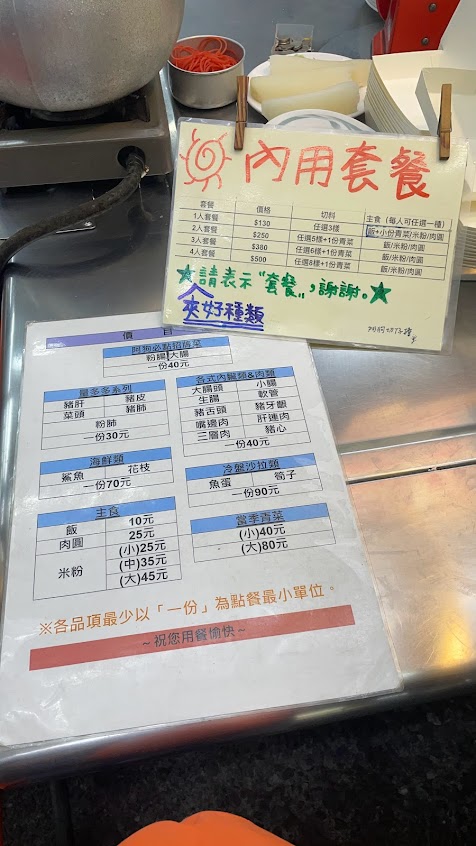 內用套餐
套餐 價格 切料 主食（每人可任選一種）
1人套餐 $130 任選3樣 飯+小份青菜/米粉/肉圓
2人套餐 $250 任選5樣+1份青菜 飯/米粉/肉圓
3人套餐 $380 任選6樣+1份青菜 飯/米粉/肉圓
4人套餐 $500 任選8樣+1份青菜 飯/米粉/肉圓
★請表示"套餐"，謝謝。★
夾好種類
價 目
阿狗必點招牌菜
粉腸 大腸
一份40元
量多多系列
豬肝 豬皮
菜頭 豬肺
粉肺
一份30元
各式內臟類&肉類
大腸頭 小腸
生腸 軟管
豬舌頭 豬牙齦
嘴邊肉 肝連肉
三層肉 豬心
一份40元
海鮮類
鯊魚 花枝
一份70元
冷盤沙拉類
魚蛋 筍子
一份90元
主食
飯 10元
肉圓 25元
米粉 (小)25元
(中)35元
(大)45元
當季青菜
(小)40元
(大)80元
※各品項最少以「一份」為點餐最小單位。
~祝您用餐愉快~